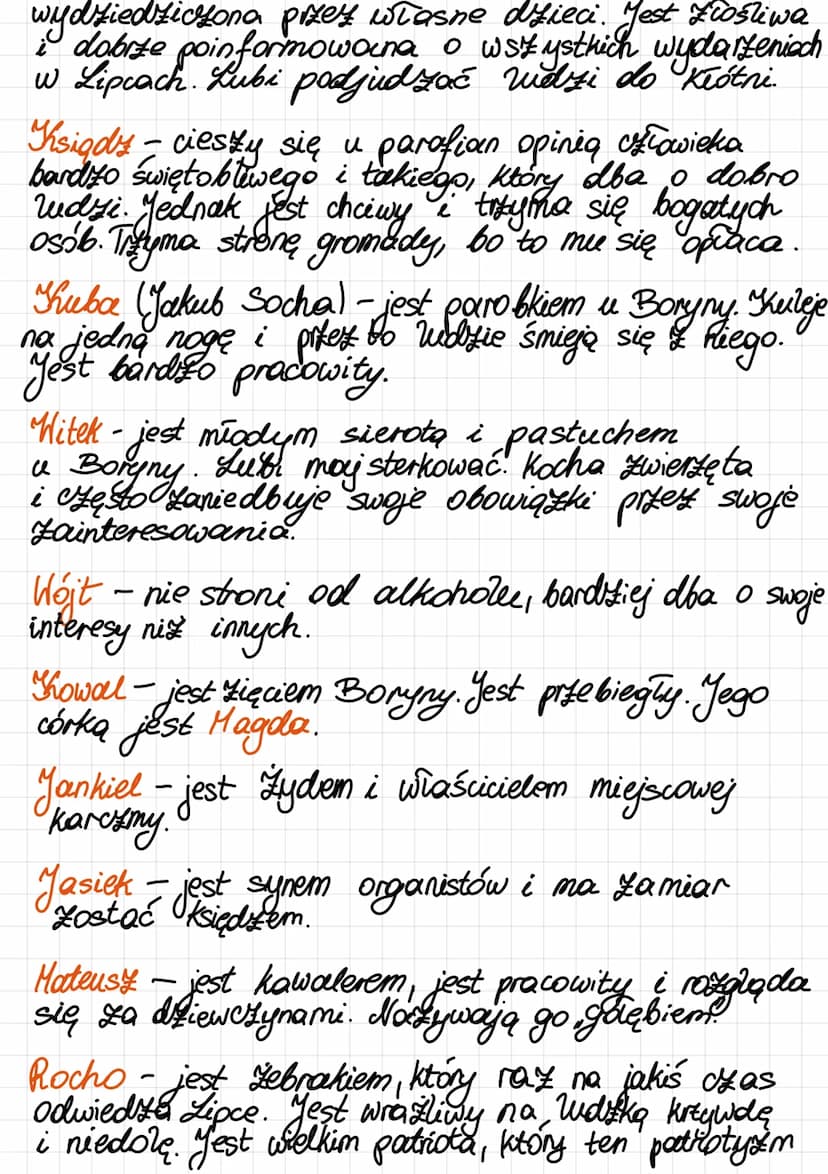 wydziedziczona przez własne dzieci. Jest złośliwa
i dobrze poinformowana o wszystkich wydarzeniach
w Lipcach. Lubi podjudzać ludzi do kłótni.
Ksiądz – cieszy się u parafian opinią człowieka
bardzo świętobliwego i takiego, który dba o dobro
ludzi. Jednak jest chciwy i trzyma się bogatych
osób. Trzyma stronę gromady, bo to mu się opłaca.
Kuba (Jakub Socha) – jest parobkiem u Boryny. Kuleje
na jedną nogę i przez to ludzie śmieją się z niego.
Jest bardzo pracowity.
Witek - jest młodym sierotą i pastuchem
u Boryny. Lubi majsterkować. Kocha zwierzęta
i często zaniedbuje swoje obowiązki przez swoje
zainteresowania.
Wójt – nie stroni od alkoholu, bardziej dba o swoje
interesy niż innych.
Kowal – jest zięciem Boryny. Jest przebiegły. Jego
córką jest Magda.
Jankiel – jest Żydem i właścicielem miejscowej
karczmy.
Jasiek – jest synem organistów i ma zamiar
zostać księdzem.
Mateusz – jest kawalerem, jest pracowity i rozgląda
się za dziewczynami. Nazywają go „gołębiem”.
Rocho - jest żebrakiem, który raz na jakiś czas
odwiedza Lipce. Jest wrażliwy na ludzką krzywdę
i niedolę. Jest wielkim patriotą, który ten patriotyzm